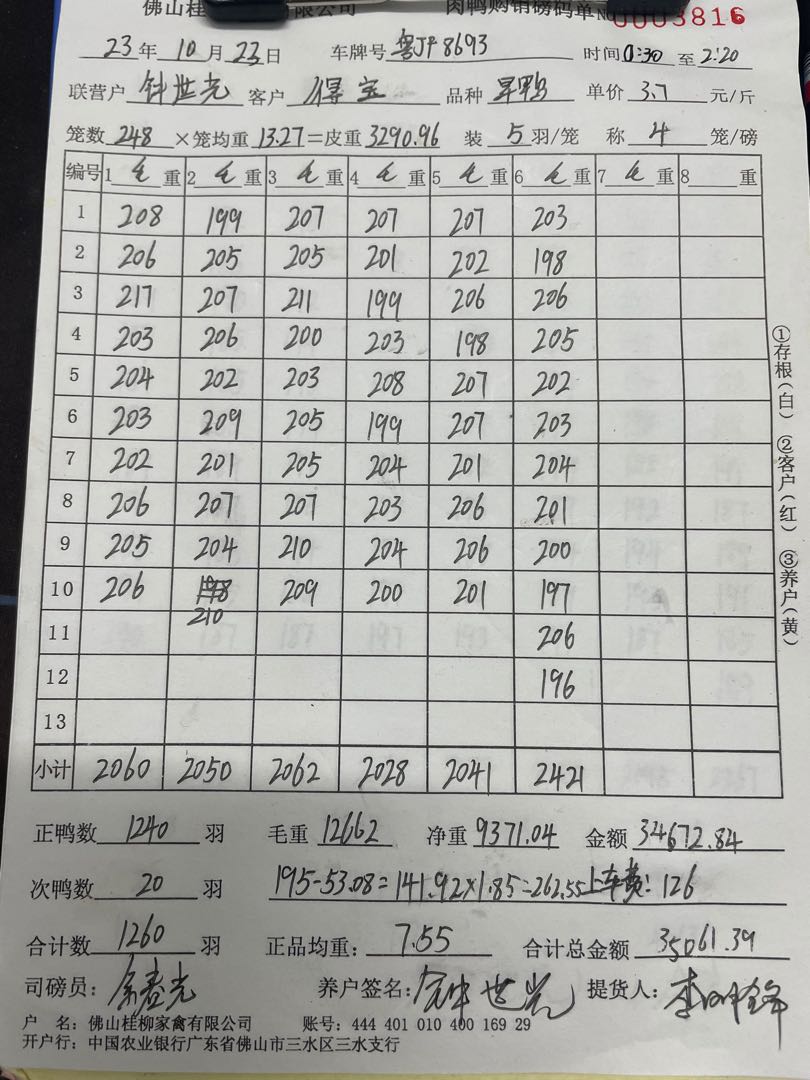 佛山桂 有限公司 肉鸭购销磅码单 No 0003816
23年10月23日 车牌号 粤JP8693 时间 0:30 至 2:20
联营户 钟世光 客户 得宝 品种 旱鸭 单价 3.7 元/斤
笼数 248 ×笼均重 13.27=皮重 3290.96 装 5 羽/笼 称 4 笼/磅
编号 1 毛 重 2 毛 重 3 毛 重 4 毛 重 5 毛 重 6 毛 重 7 毛 重 8 重
1 208 199 207 207 207 203
2 206 205 205 201 202 198
3 217 207 211 199 206 206
4 203 206 200 203 198 205
5 204 202 203 208 207 202
6 203 209 205 199 207 203
7 202 201 205 204 201 204
8 206 207 207 203 206 201
9 205 204 210 204 206 200
10 206 198 209 200 201 197
210
11 206
12 196
13
小计 2060 2050 2062 2028 2041 2421
正鸭数 1240 羽 毛重 12662 净重 9371.04 金额 34672.84
次鸭数 20 羽 195-53.08=141.92×1.85=262.55 上车费: 126
合计数 1260 羽 正品均重: 7.55 合计总金额 35061.39
司磅员: 养户签名: 钟世光 提货人:
户 名: 佛山桂柳家禽有限公司 账号: 444 401 010 400 169 29
开户行: 中国农业银行广东省佛山市三水区三水支行
①存根(白) ②客户(红) ③养户(黄)